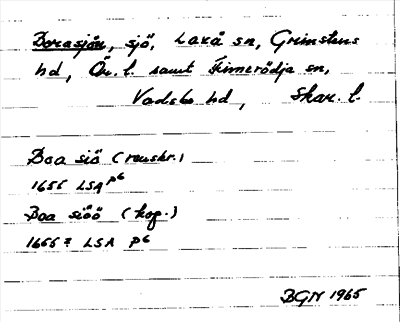 Borasjön, sjö, Laxå sn, Grimstens
hd, Ör. l. samt Finnerödja sn,
Vadsbo hd, Skar. l.
Boa siö (renskr.)
1655 LSA P6
Boa siöö (kop.)
1665? LSA P6
BGN 1965